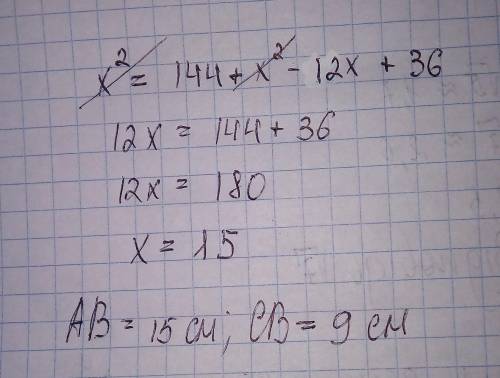 x² = 144 + x² - 12x + 36
12x = 144 + 36
12x = 180
x = 15
AB = 15 см; CB = 9 см